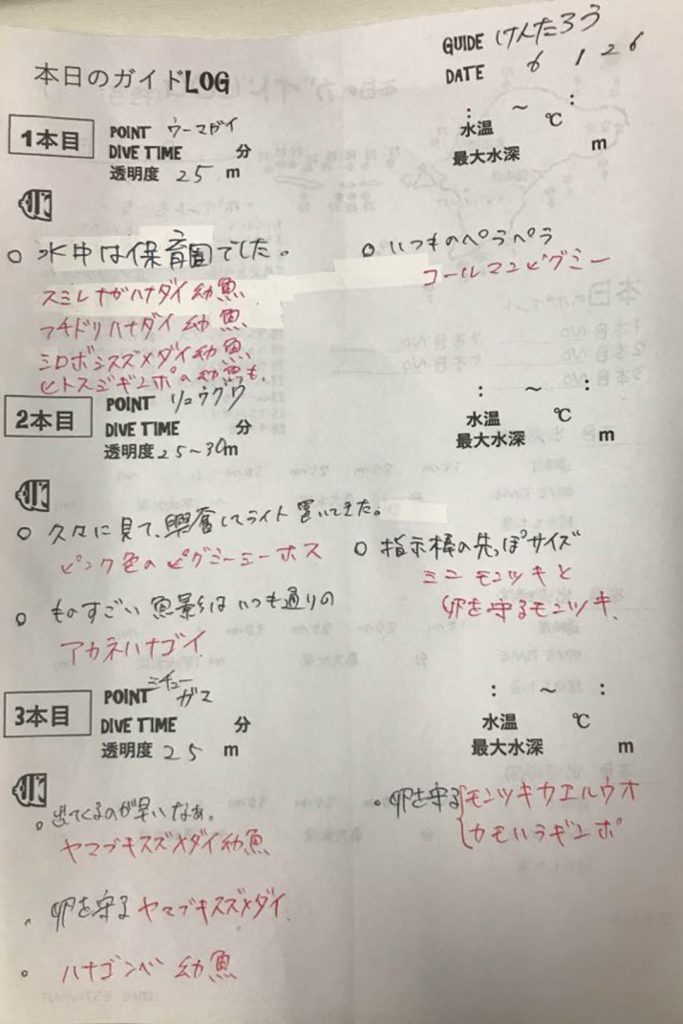 本日のガイドLOG
GUIDE けんたろう
DATE 6 1 26
1本目
POINT ウーマガイ
DIVE TIME 分
透明度 25 m
: ～ :
水温 ℃
最大水深 m
○ 水中は保育園でした。
スミレナガハナダイ幼魚
フチドリハナダイ幼魚
ミロボシスズメダイ幼魚
ヒトスジギンポの幼魚も.
○ いつものペラペラ
コールマンピグミー
2本目
POINT リュウグウ
DIVE TIME 分
透明度 25～30m
: ～ :
水温 ℃
最大水深 m
○ 久々に見て、興奮してライト置いてきた。
ピンク色のピグミーシーホス
○ ものすごい魚影はいつも通りの
アカネハナゴイ
○ 指示棒の先っぽサイズ
ミニモンツキと
卵を守るモンツキ.
3本目
POINT ミチューガマ
DIVE TIME 分
透明度 25 m
: ～ :
水温 ℃
最大水深 m
○ 出てくるのが早いなぁ。
ヤマブキスズメダイ幼魚
卵を守る ヤマブキスズメダイ.
○ ハナゴンベ 幼魚
・卵を守る モンツキカエルウオ
カモハラギンポ